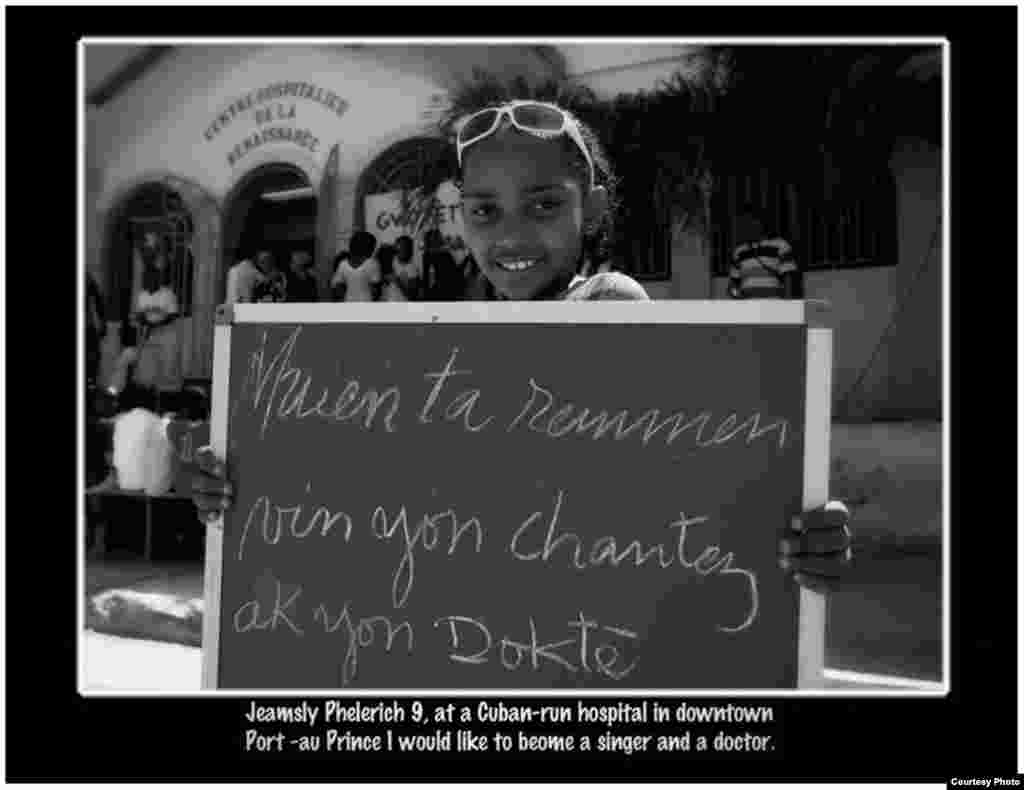 CENTRE HOSPITALIER
DE LA
RENAISSANCE
Mwen ta renmmen
vin yon chantez
ak yon Doktē
Jeamsly Phelerich 9, at a Cuban-run hospital in downtown
Port -au Prince I would like to beome a singer and a doctor.
Courtesy Photo